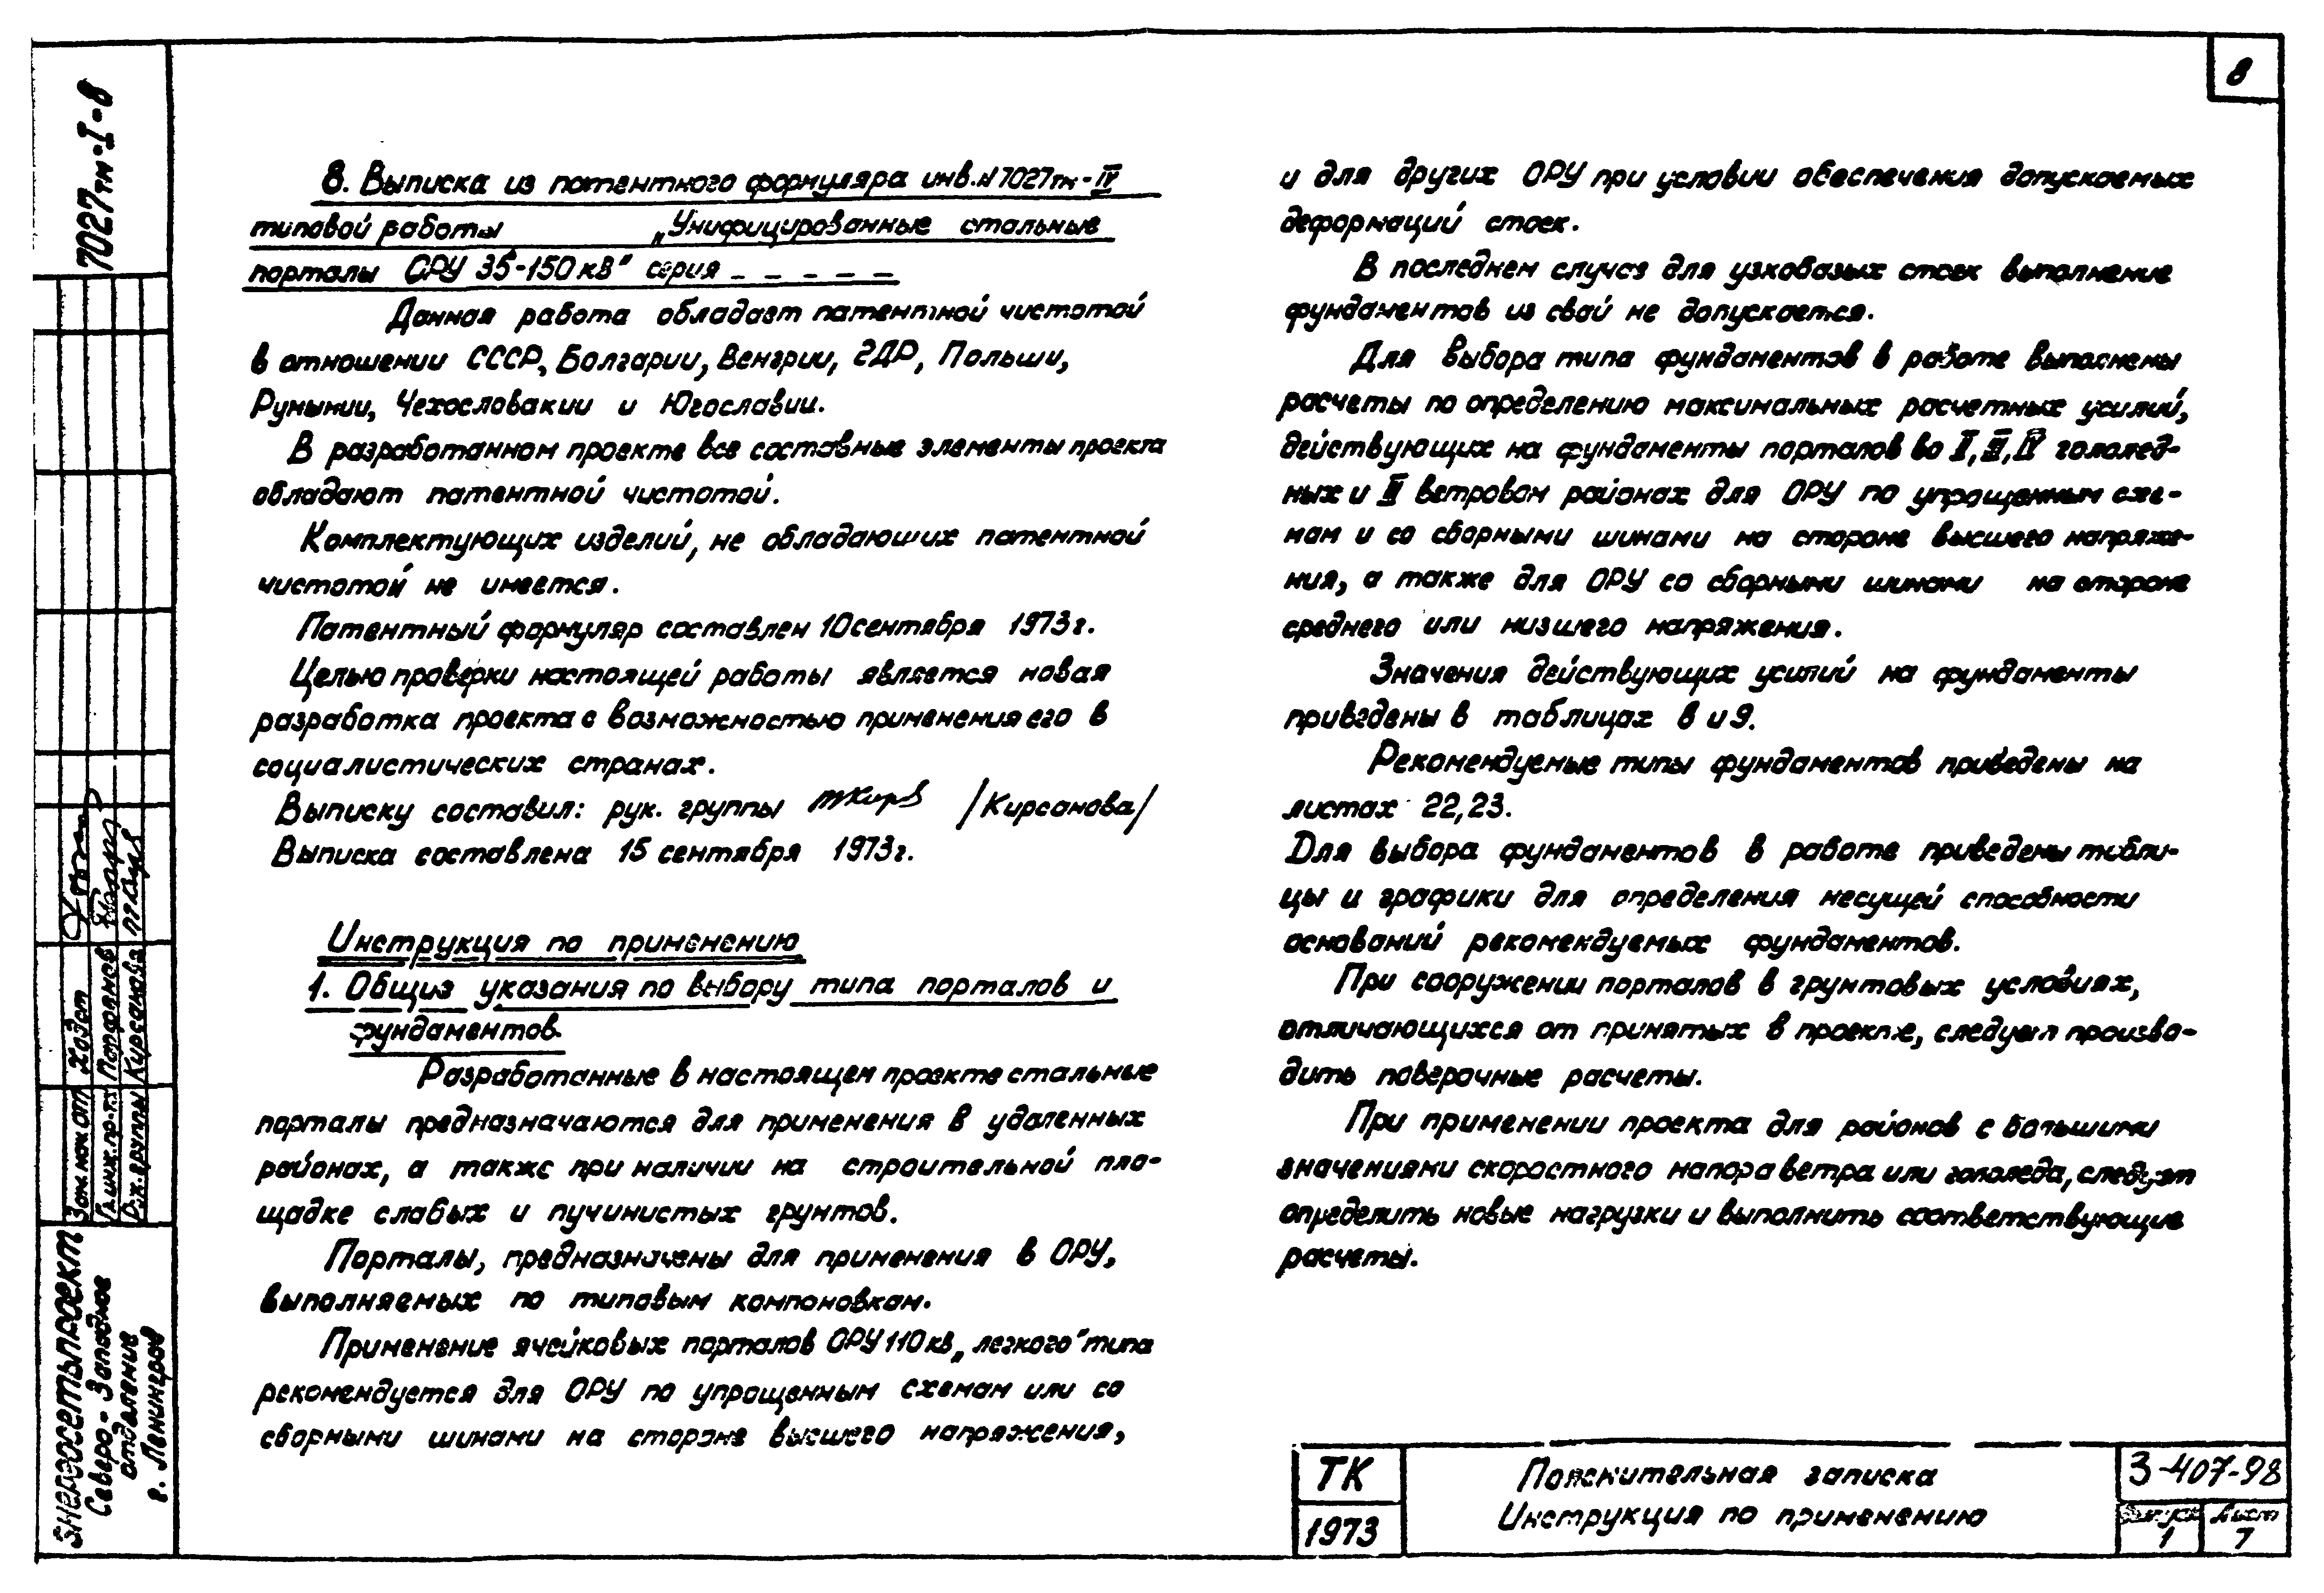 8
7027тм-I-8
8. Выписка из патентного формуляра инв.N7027тм-IV
типовой работы „Унифицированные стальные
порталы ОРУ 35-150кВ" серия _ _ _ _ _
Данная работа обладает патентной чистотой
в отношении СССР, Болгарии, Венгрии, ГДР, Польши,
Румынии, Чехословакии и Югославии.
В разработанном проекте все составные элементы проекта
обладают патентной чистотой.
Комплектующих изделий, не обладающих патентной
чистотой не имеется.
Патентный формуляр составлен 10 сентября 1973г.
Целью проверки настоящей работы является новая
разработка проекта с возможностью применения его в
социалистических странах.
Выписку составил: рук. группы /Кирсанова/
Выписка составлена 15 сентября 1973г.
Инструкция по применению
1. Общие указания по выбору типа порталов и
фундаментов.
Разработанные в настоящем проекте стальные
порталы предназначаются для применения в удаленных
районах, а также при наличии на строительной пло-
щадке слабых и пучинистых грунтов.
Порталы, предназначены для применения в ОРУ,
выполняемых по типовым компоновкам.
Применение ячейковых порталов ОРУ 110 кв „легкого" типа
рекомендуется для ОРУ по упрощенным схемам или со
сборными шинами на стороне высшего напряжения,
и для других ОРУ при условии обеспечения допускаемых
деформаций стоек.
В последнем случае для узкобазых стоек выполнение
фундаментов из свай не допускается.
Для выбора типа фундаментов в работе выполнены
расчеты по определению максимальных расчетных усилий,
действующих на фундаменты порталов во II, III, IV гололед-
ных и III ветровом районах для ОРУ по упрощенным схе-
мам и со сборными шинами на стороне высшего напряже-
ния, а также для ОРУ со сборными шинами на стороне
среднего или низшего напряжения.
Значения действующих усилий на фундаменты
приведены в таблицах 8 и 9.
Рекомендуемые типы фундаментов приведены на
листах 22,23.
Для выбора фундаментов в работе приведены табли-
цы и графики для определения несущей способности
оснований рекомендуемых фундаментов.
При сооружении порталов в грунтовых условиях,
отличающихся от принятых в проекте, следует произво-
дить поверочные расчеты.
При применении проекта для районов с большими
значениями скоростного напора ветра или гололеда, следует
определить новые нагрузки и выполнить соответствующие
расчеты.
Зам. нач. от Ходот
Гл. инж. пр-та Парфянов
Рук. группы Кирсанова
Энергосетьпроект
Северо-Западное
отделение
г. Ленинград
ТК
1973
Пояснительная записка
Инструкция по применению
3-407-98
Выпуск 1
Лист 7